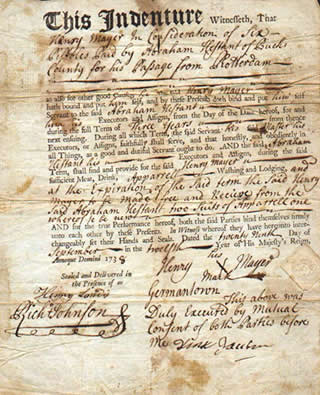 This Indenture Witnesseth, That
Henry Mayer In Consideration of Six
Pistoles Paid by Abraham Hestant of Bucks
County for his Passage from Rotterdam
as also for other good Causes he the said Henry Mayer
hath bound and put him self, and by these Presents doth bind and put him self
Servant to the said Abraham Hestant
Executors and Assigns, from the Day of the Date hereof, for and
during the full Term of Three Years from thence
next ensuing. During all which Term, the said Servant his said Master his
Executors, or Assigns, faithfully shall serve, and that honestly and obediently in
all Things, as a good and dutiful Servant ought to do. AND the said Abraham
Hestant his Executors and Assigns, during the said
Term, shall find and provide for the said Henry Mayer
sufficient Meat, Drink, Apparrel Washing and Lodging, and
at the Expiration of the Said term the Said Henry
Mayer to be made free and Receive from the
Said Abraham Hestant two Suits of Apparrell one
whereof to be new
AND for the true Performance hereof, both the said Parties bind themselves firmly
unto each other by these Presents. In Witness whereof they have interchangeably
set their Hands and Seals. Dated the Day of
September in the twelfth Year of His Majesty's Reign,
Annoque Domini 1738
his
Henry Mayer
Mark
Sealed and Delivered in
the Presence of us
Henry
Rich Johnson
Germantown
This above was
Duly Executed by Mutual
Consent of both Parties before
Me